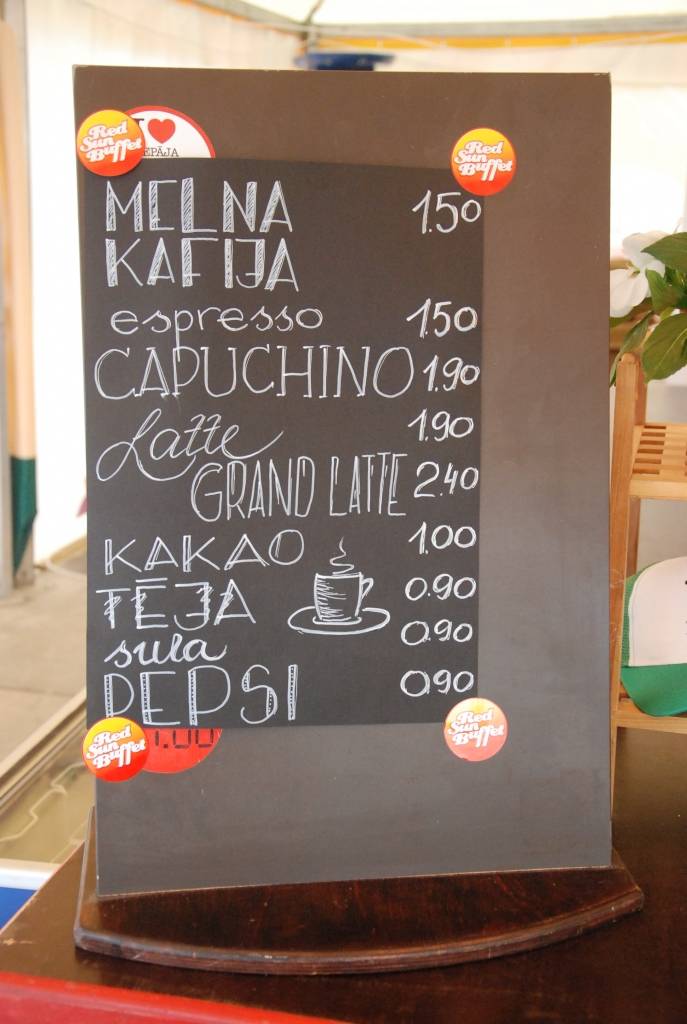 I ❤
EPĀJA
Red
Sun
Buffet
Red
Sun
Buffet
MELNA 1.50
KAFIJA
espresso 1.50
CAPUCHINO 1.90
Latte 1.90
GRAND LATTE 2.40
KAKAO 1.00
TĒJA 0.90
sula 0.90
PEPSI 0.90
Red
Sun
Buffet
1.00
Red
Sun
Buffet